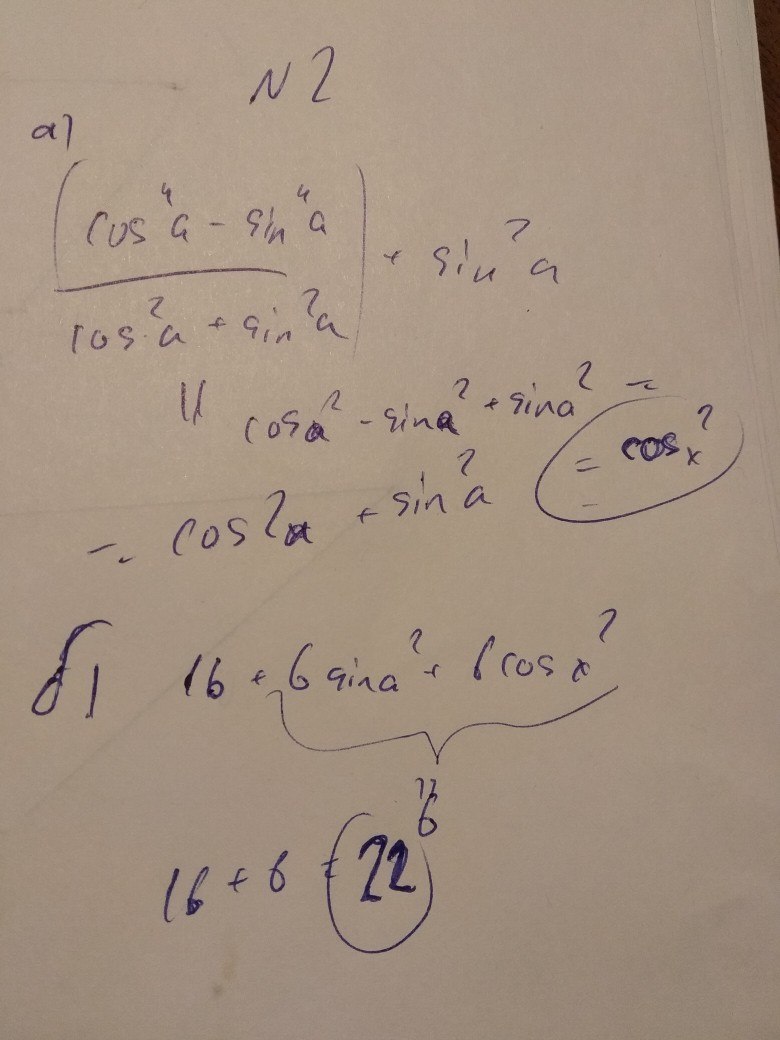 N 2
a)
(cos⁴a - sin⁴a
cos²a + sin²a) + sin²a
|| cosa² - sina² + sina² =
= cosx²
= cos2a + sin²a
б) 16 + 6sina² + 6cosx²
"
6
16 + 6 = 22